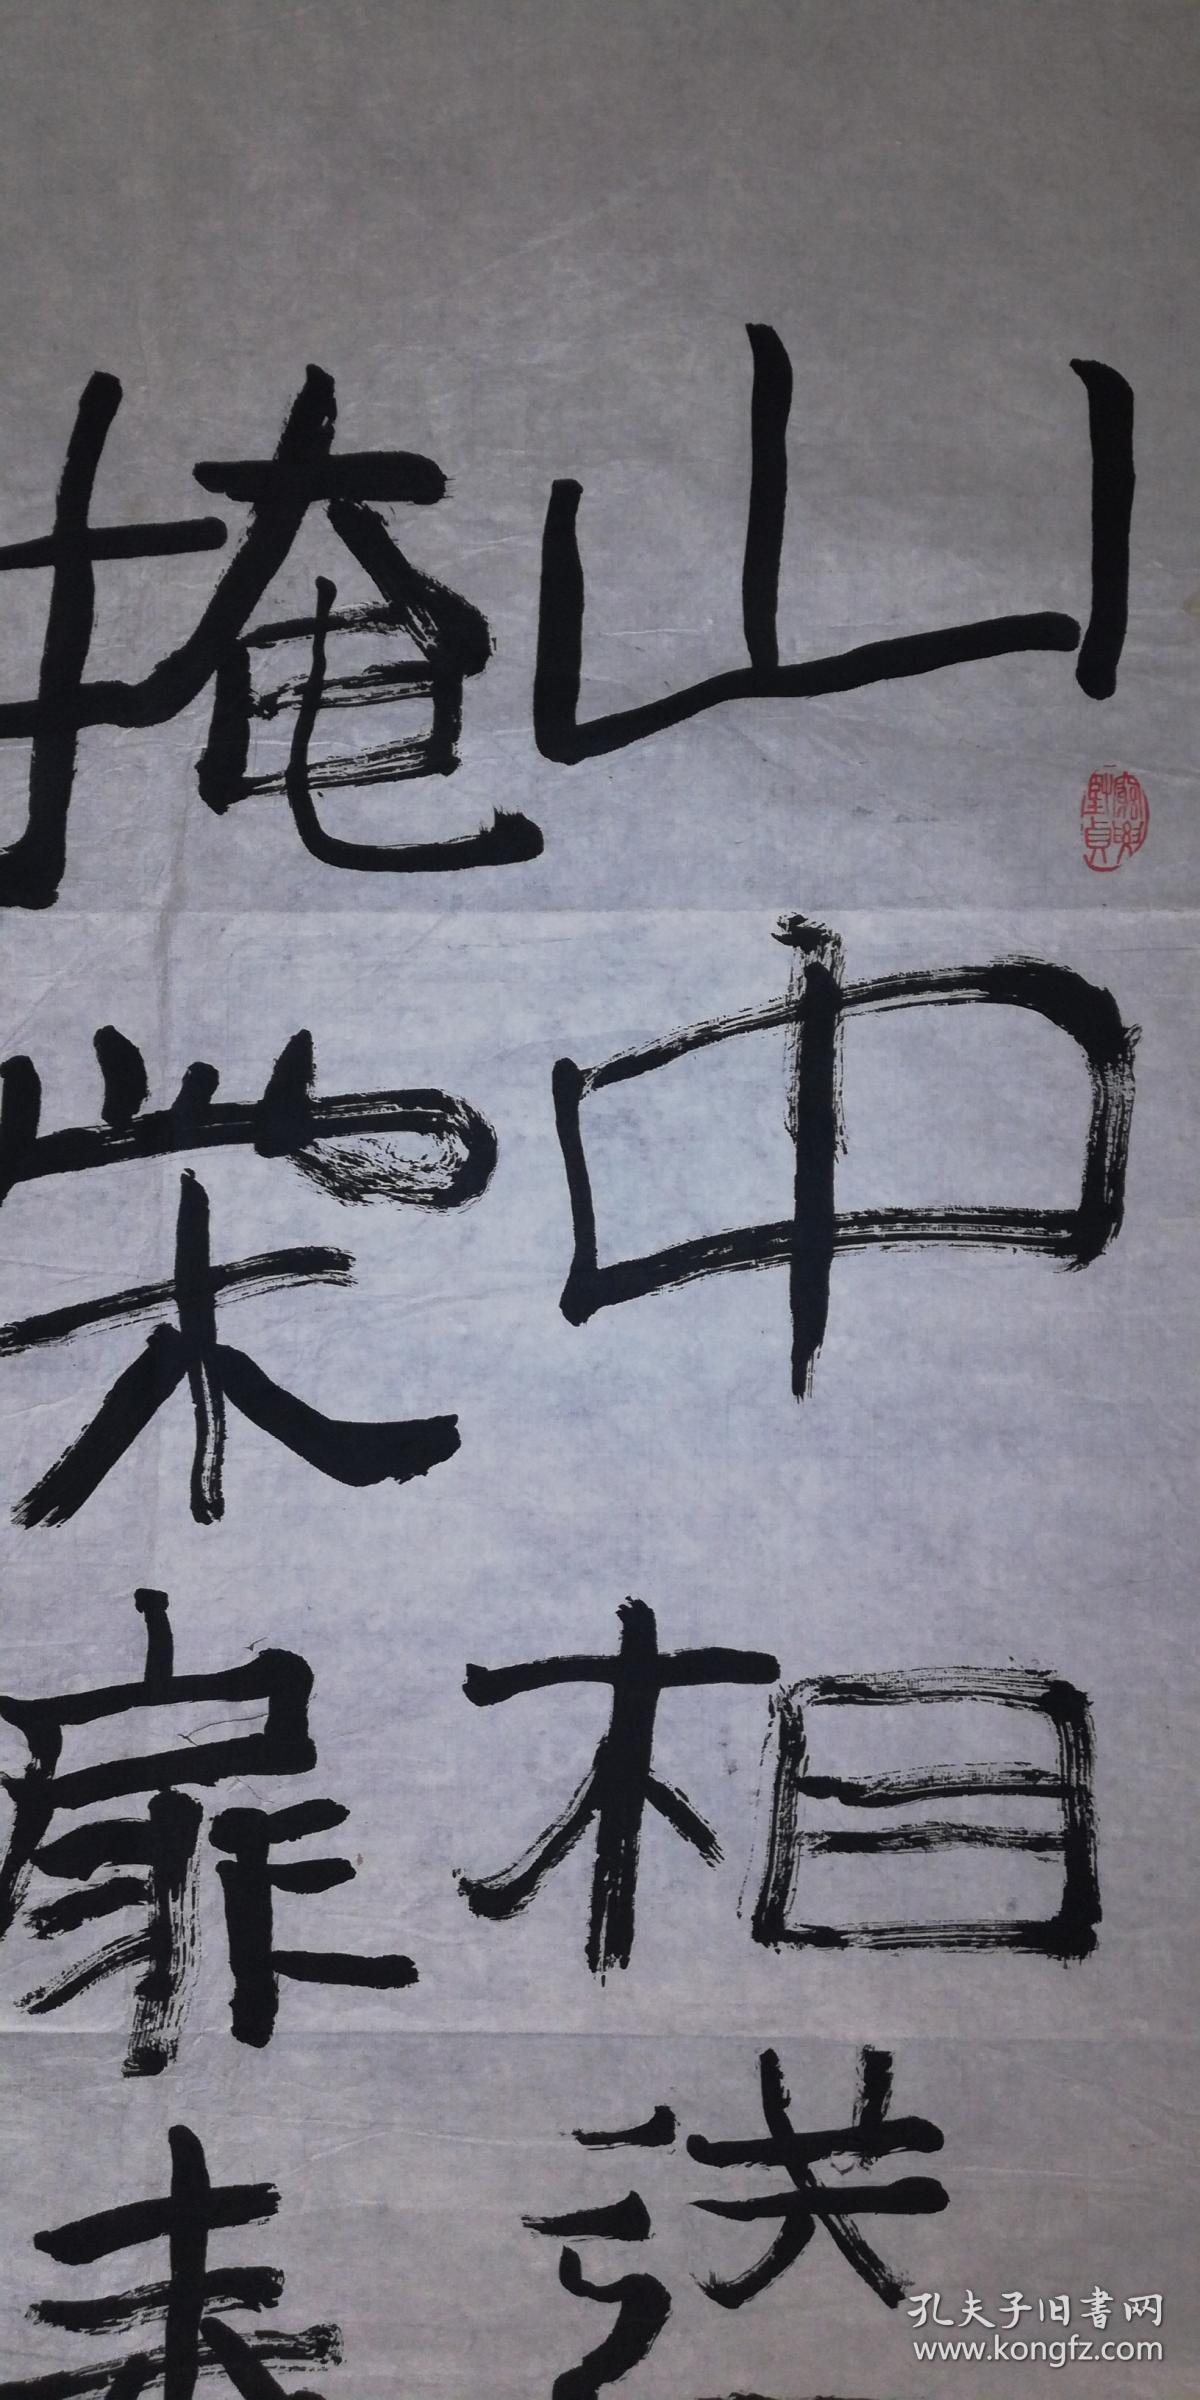 山中相送
掩柴扉春
孔夫子旧书网
www.kongfz.com